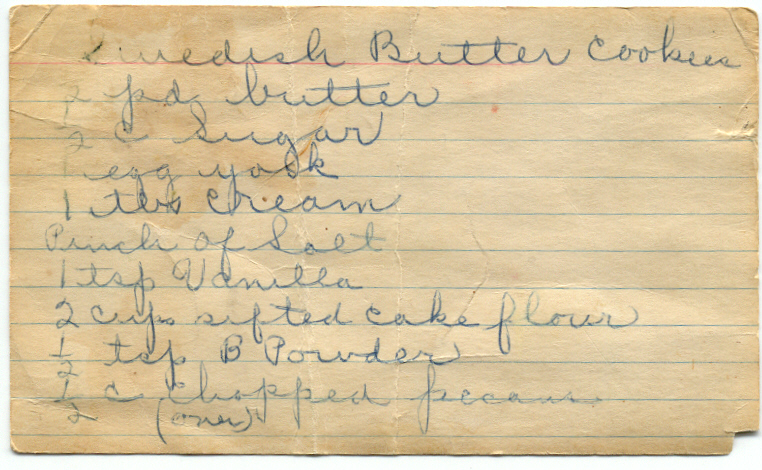 Swedish Butter Cookies
½ pd butter
½ c Sugar
1 egg yolk
1 tbs cream
Pinch of Salt
1 tsp Vanilla
2 cups sifted cake flour
½ tsp B Powder
½ c chopped pecans
(over)